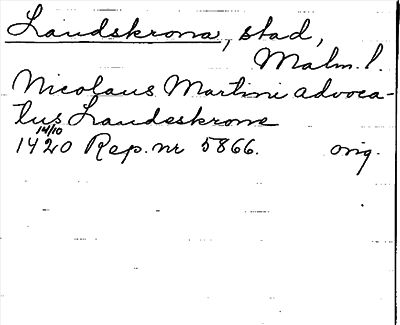 Landskrona, stad,
Malm. l.
Nicolaus Martini advoca-
tus Landeskrone
14/10
1420 Rep. nr 5866. orig.